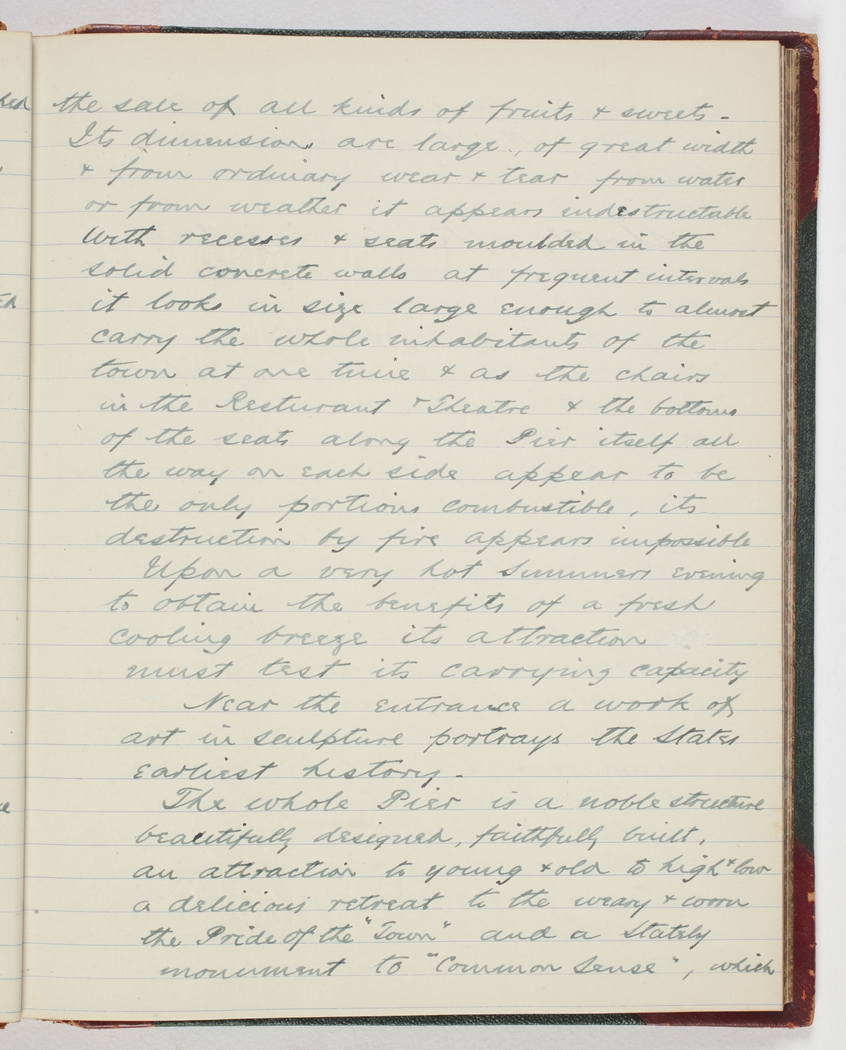 the sale of all kinds of fruits & sweets -
Its dimensions are large., of great width
& from ordinary wear & tear from water
or from weather it appears indestructable
With recesses & seats moulded in the
solid concrete walls at frequent intervals
it looks in size large enough to almost
carry the whole inhabitants of the
town at one time & as the chairs
in the Resturant & Theatre & the bottoms
of the seats along the Pier itself all
the way on each side appear to be
the only portions combustible, its
destruction by fire appears impossible
Upon a very hot Summers evening
to obtain the benefits of a fresh
cooling breeze its attraction
must test its carrying capacity
Near the entrance a work of
art in sculpture portrays the States
earliest history.-
The whole Pier is a noble structure
beautifully designed, faithfully built,
an attraction to young & old to high & low
a delicious retreat to the weary & worn
the Pride of the "Town" and a Stately
monument to "Common Sense", which